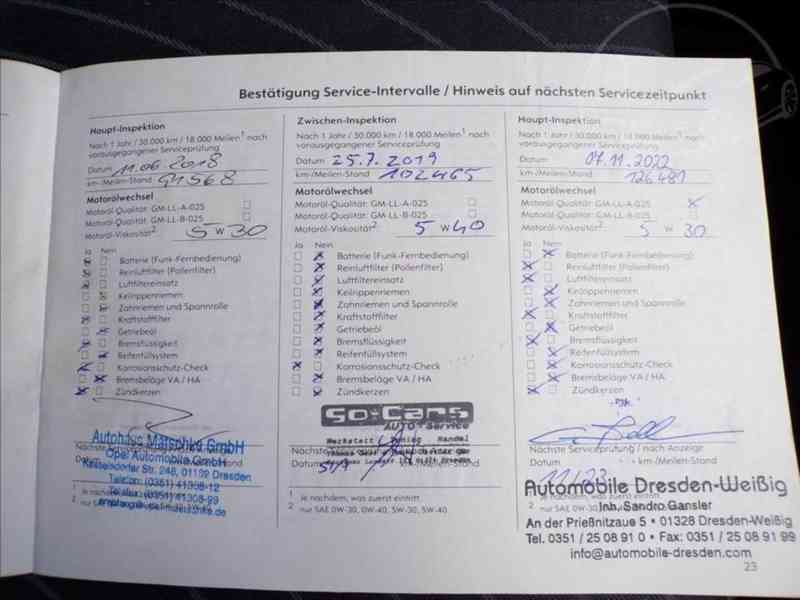 Bestätigung Service-Intervalle / Hinweis auf nächsten Servicezeitpunkt
Haupt-Inspektion
Nach 1 Jahr / 30.000 km / 18.000 Meilen1 nach
vorausgegangener Serviceprüfung
Datum 11.06.2018
km-/Meilen-Stand 91568
Motorölwechsel
Motoröl-Qualität: GM-LL-A-025
Motoröl-Qualität: GM-LL-B-025
Motoröl-Viskosität2: 5 W 30
Ja Nein
Batterie (Funk-Fernbedienung)
Reinluftfilter (Pollenfilter)
Luftfiltereinsatz
Keilrippenriemen
Zahnriemen und Spannrolle
Kraftstoffilter
Getriebeöl
Bremsflüssigkeit
Reifenfüllsystem
Korrosionsschutz-Check
Bremsbeläge VA / HA
Zündkerzen
Autohaus Matschke GmbH
Opel Automobile GmbH
Kesselsdorfer Str. 248, 01169 Dresden
Telefon: (0351) 41308-12
Telefax: (0351) 41308-99
Zwischen-Inspektion
Nach 1 Jahr / 30.000 km / 18.000 Meilen1 nach
vorausgegangener Serviceprüfung
Datum 25.7.2019
km-/Meilen-Stand 102465
Motorölwechsel
Motoröl-Qualität: GM-LL-A-025
Motoröl-Qualität: GM-LL-B-025
Motoröl-Viskosität2: 5 W 40
Ja Nein
Batterie (Funk-Fernbedienung)
Reinluftfilter (Pollenfilter)
Luftfiltereinsatz
Keilrippenriemen
Zahnriemen und Spannrolle
Kraftstoffilter
Getriebeöl
Bremsflüssigkeit
Reifenfüllsystem
Korrosionsschutz-Check
Bremsbeläge VA / HA
Zündkerzen
go-Cars
AUTO-Service
Werkstatt Tuning Handel
Datum km-/Meilen-Stand
1 Je nachdem, was zuerst eintritt
2 nur SAE 0W-30, 0W-40, 5W-30, 5W-40
Haupt-Inspektion
Nach 1 Jahr / 30.000 km / 18.000 Meilen1 nach
vorausgegangener Serviceprüfung
Datum 07.11.2022
km-/Meilen-Stand 126481
Motorölwechsel
Motoröl-Qualität: GM-LL-A-025
Motoröl-Qualität: GM-LL-B-025
Motoröl-Viskosität2: 5 W 30
Ja Nein
Batterie (Funk-Fernbedienung)
Reinluftfilter (Pollenfilter)
Luftfiltereinsatz
Keilrippenriemen
Zahnriemen und Spannrolle
Kraftstoffilter
Getriebeöl
Bremsflüssigkeit
Reifenfüllsystem
Korrosionsschutz-Check
Bremsbeläge VA / HA
Zündkerzen
Nächste Serviceprüfung / nach Anzeige
Datum km-/Meilen-Stand
11/23
Automobile Dresden-Weißig
Inh. Sandro Gansler
An der Prießnitzaue 5 • 01328 Dresden-Weißig
Tel. 0351 / 25 08 91 0 • Fax: 0351 / 25 08 91 99
info@automobile-dresden.com
23